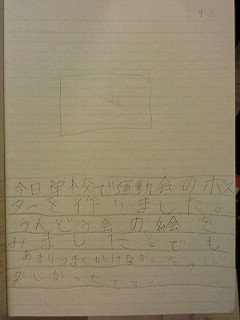 今日学校で運動会のポス
ターを作りました。
うんどう会の絵を
みました。でも
あまりうまくかけなかった
楽しかったです。